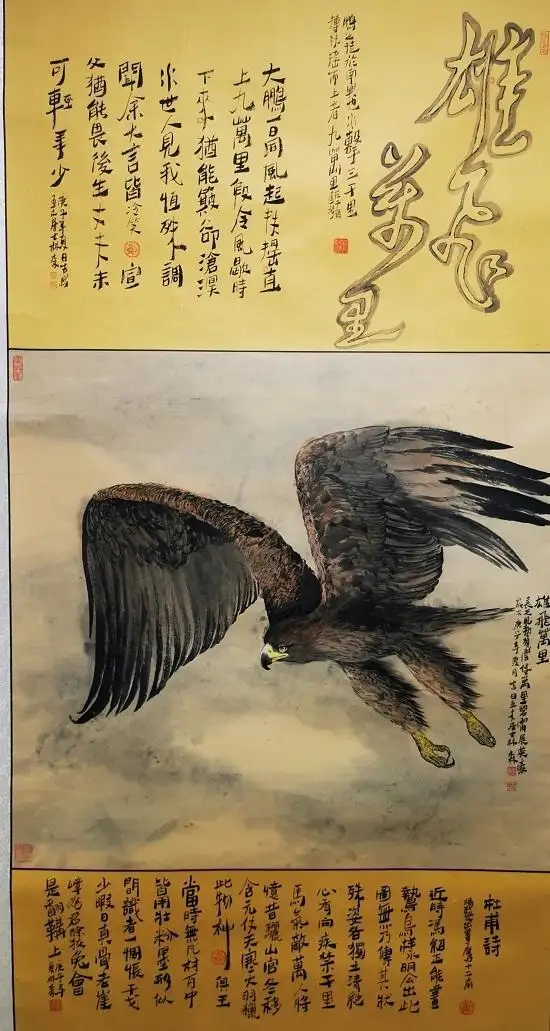 雄飛
萬里
鵬之徙於南冥也水擊三千里
摶扶搖而上者九萬里
大鵬一日同風起扶搖直
上九萬里假令風歇時
下來猶能簸卻滄溟
水世人見我恆殊調
聞余大言皆冷笑宣
父猶能畏後生丈夫未
可輕年少
雄飛萬里
杜甫詩
近時馮紹正能畫
鷙鳥樣明公出此
圖無乃傳其狀
殊姿各獨立清絕
心有向疾禁千里
馬氣敵萬人將
憶昔驪山宮冬移
含元仗天寒大羽獵
此物神俱王
當時無凡材百中
皆用壯粉墨形似
間識者一惆悵干戈
少暇日真骨老崖
嶂為君除狡兔會
是翻鞲上